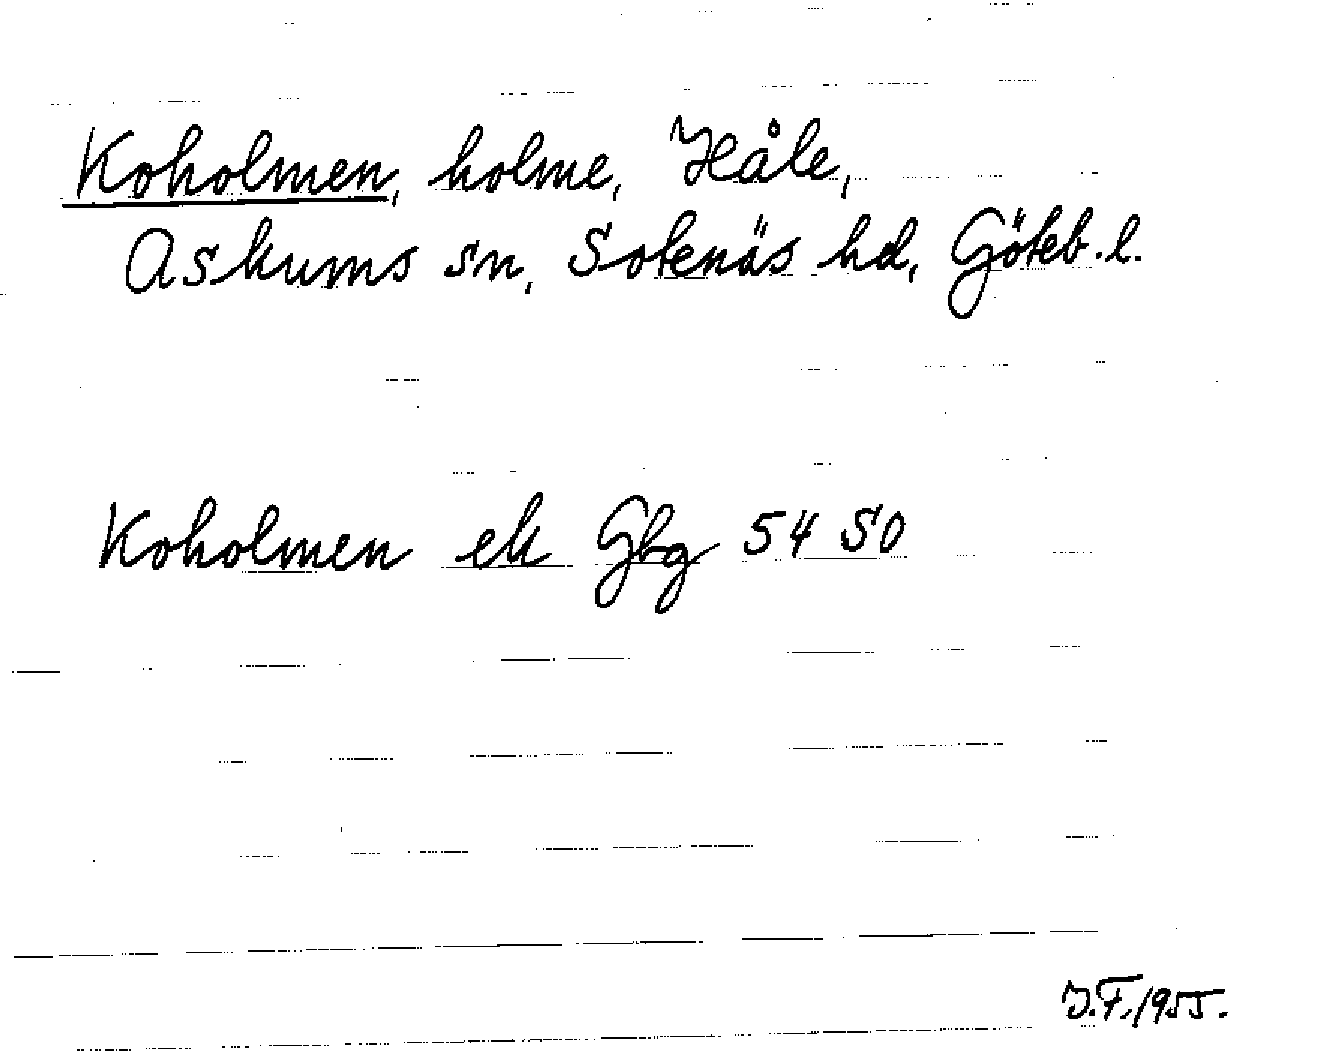 Koholmen, holme, Håle,
Askums sn, Sotenäs hd, Göteb. l.
Koholmen ek Gbg 54 SO
J.F. 1955.